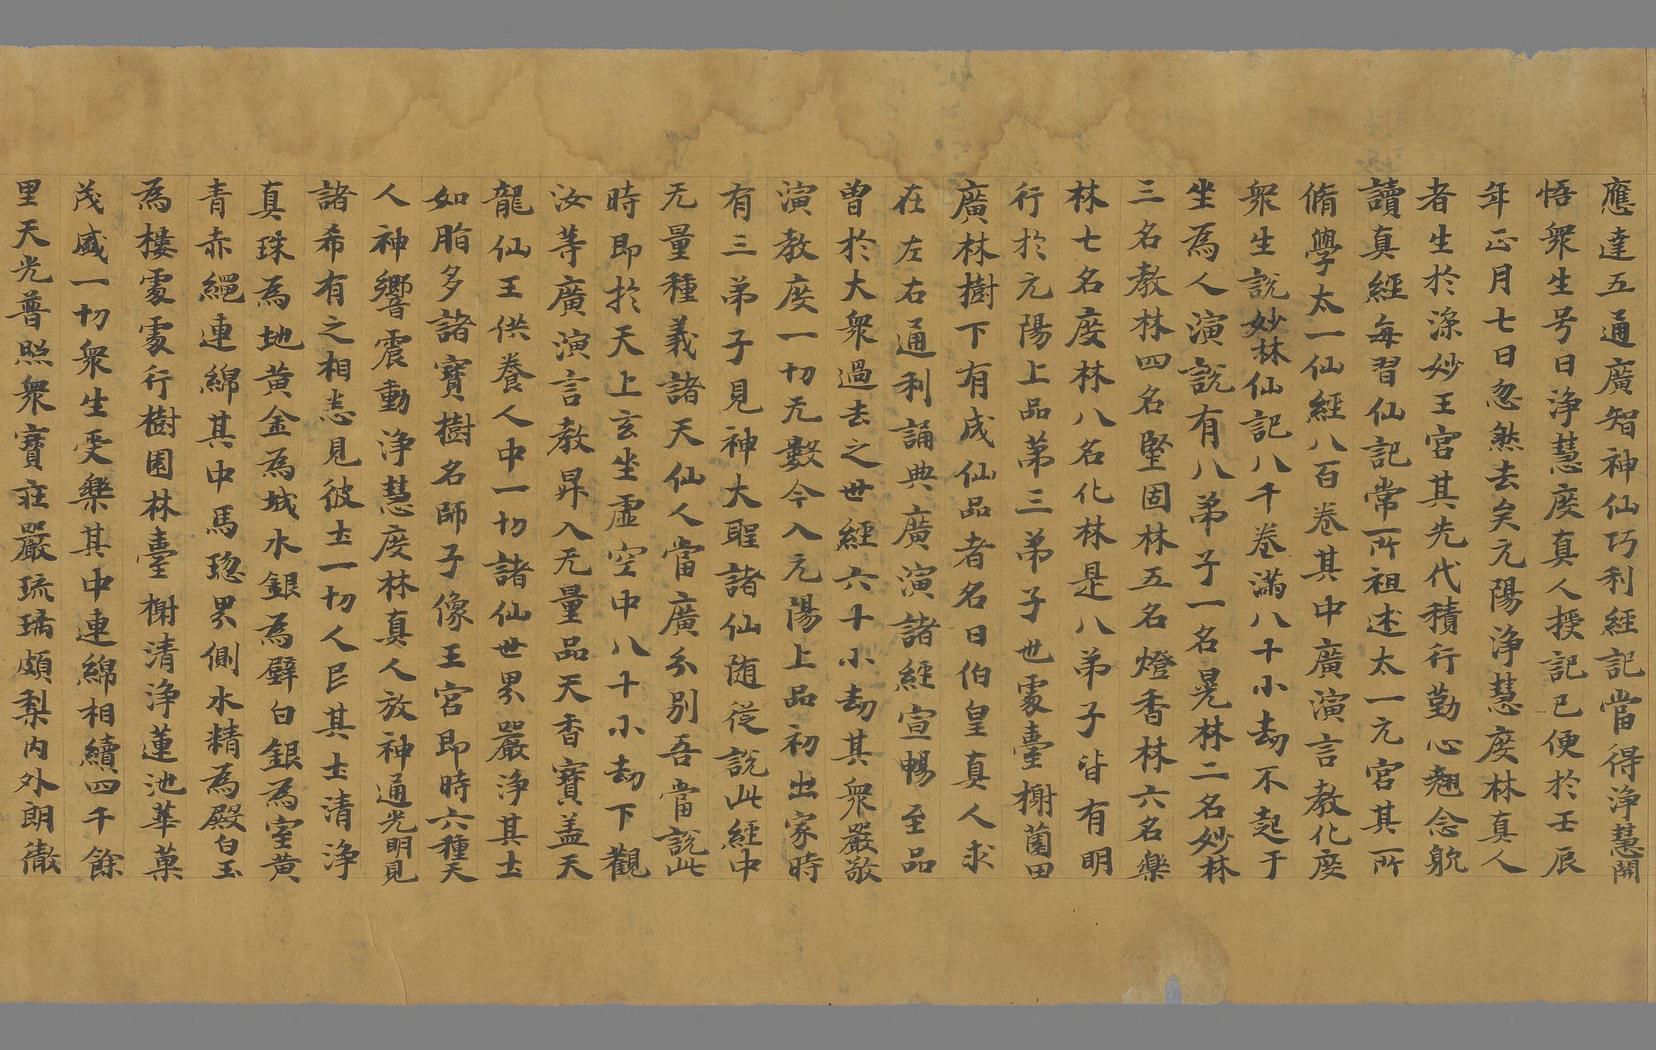 應達五通廣智神仙巧利經記當得淨慧開
悟衆生号曰淨慧度真人授記已便於壬辰
年正月七日忽然去矣元陽淨慧度林真人
者生於滌妙王宮其先代積行勤心翹念躭
讀真經每習仙記常所祖述太一元宮其所
脩學太一仙經八百卷其中廣演言教化度
衆生説妙林仙記八千卷滿八十小劫不起于
坐爲人演説有八弟子一名晃林二名妙林
三名教林四名堅固林五名燈香林六名樂
林七名度林八名化林是八弟子皆有明
行於元陽上品第三弟子也處臺榭薗田
廣林樹下有成仙品者名曰伯皇真人求
在左右通利誦典廣演諸經宣暢至品
曾於大衆過去之世經六十小劫其衆嚴敬
演教度一切无數今入元陽上品初出家時
有三弟子見神大聖諸仙随從説此經中
无量種義諸天仙人當廣分别吾當説此
時即於天上玄坐虛空中八十小劫下觀
汝等廣演言教昇入无量品天香寶盖天
龍仙王供養人中一切諸仙世界嚴淨其土
如脂多諸寶樹名師子像王宮即時六種天
人神響震動淨慧度林真人放神通光明見
諸希有之相悉見彼土一切人民其土清淨
真珠爲地黄金爲城水銀爲壁白銀爲室黄
青赤繩連綿其中馬瑙界側水精爲殿白玉
爲樓處處行樹園林臺榭清淨蓮池華菓
茂盛一切衆生受樂其中連綿相續四千餘
里天光普照衆寶莊嚴琉璃頗梨内外朗徹